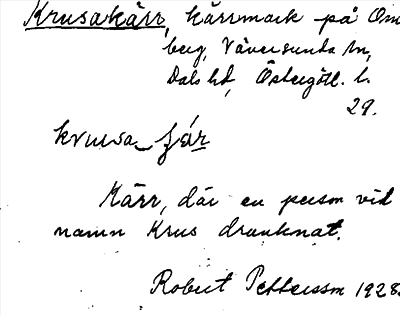 Krusakärr, kärrmark på Om
berg, Väversunda sn,
Dals hd, Östergötl. l.
29.
krusa_
Kärr, där en person vid
namn Krus drunknat.
Robert Pettersson 1928.